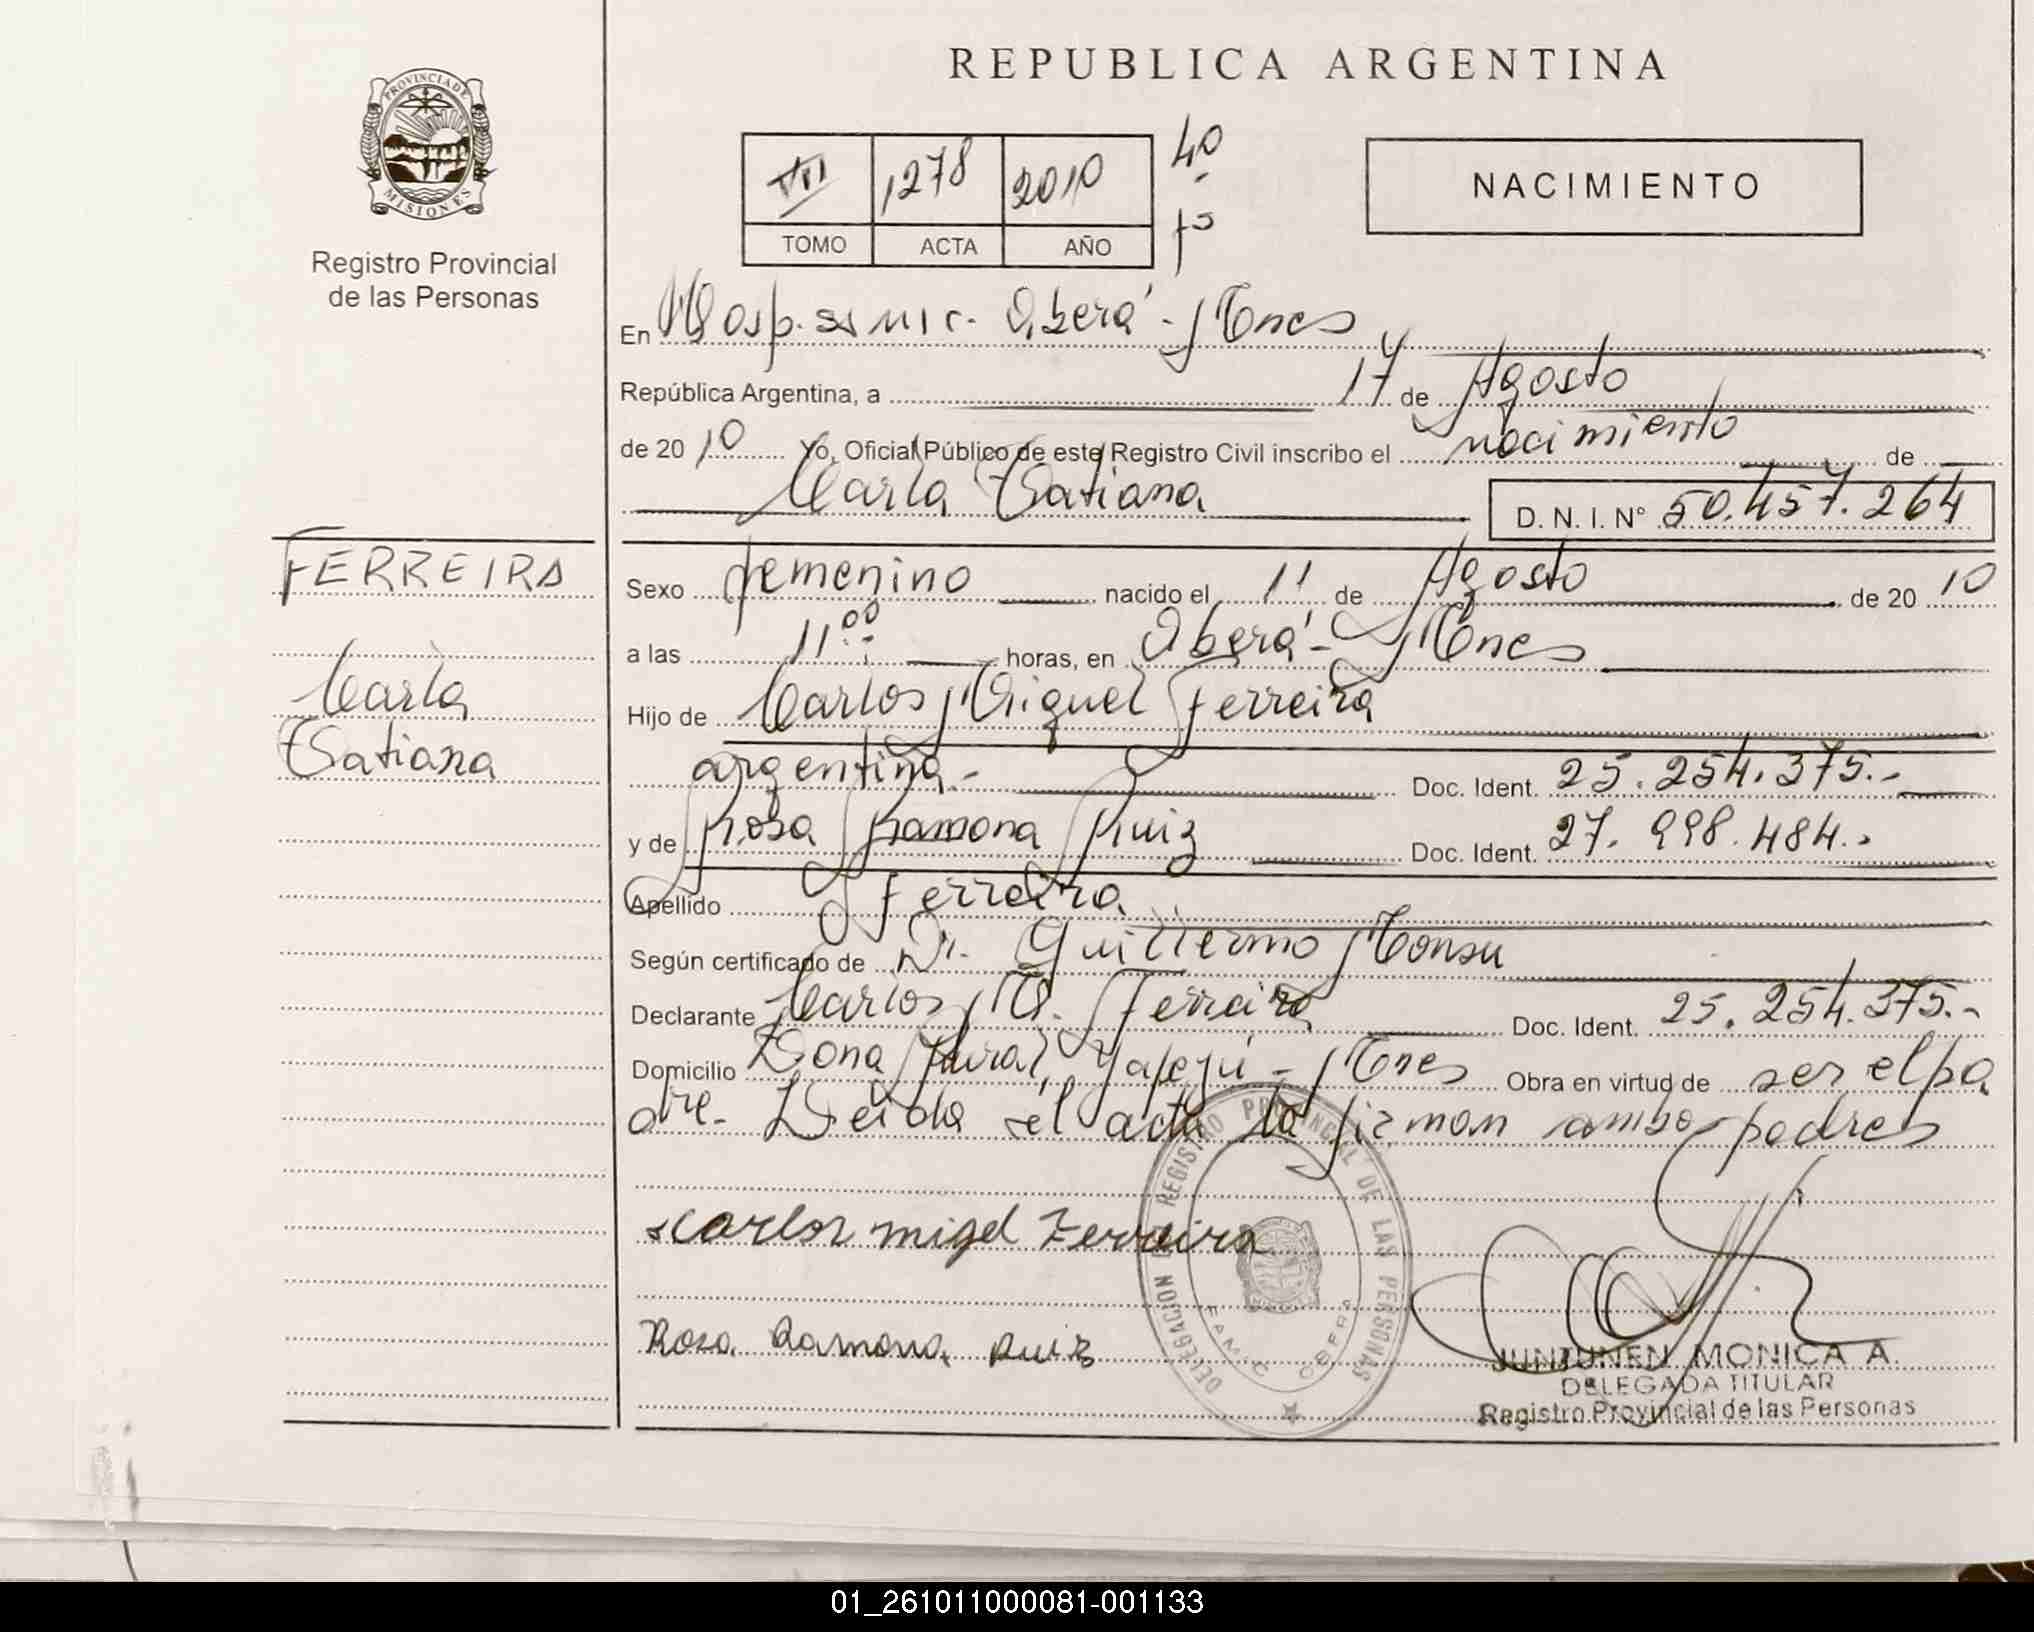 REPUBLICA ARGENTINA
PROVINCIA DE
MISIONES
Registro Provincial
de las Personas
VII 1278 2010 40
TOMO ACTA AÑO
NACIMIENTO
En Hosp. Samic. Oberá - Mnes
República Argentina, a 17 de Agosto
de 20 10 Yo, Oficial Público de este Registro Civil inscribo el nacimiento de
Carla Tatiana D. N. I. Nº 50.457.264
FERREIRA
Carla
Tatiana
Sexo femenino nacido el 11 de Agosto de 20 10
a las 11:00 horas, en Oberá - Mnes
Hijo de Carlos Miguel Ferreira
argentina.- Doc. Ident. 25.254.375.-
y de Rosa Ramona Ruiz Doc. Ident. 27.998.484.-
Apellido Ferreira
Según certificado de Dr. Guillermo Monsu
Declarante Carlos M. Ferreira Doc. Ident. 25.254.375.-
Domicilio Zona Rural, Yapeyú - Mnes Obra en virtud de ser el pa
dre. Leida el acta la firman ambos padres
Carlos migel Ferreira
Rosa Ramona Ruiz
DELEGACION DE REGISTRO PROVINCIAL DE LAS PERSONAS
JUNTUNEN MONICA A.
DELEGADA TITULAR
Registro Provincial de las Personas
01_261011000081-001133